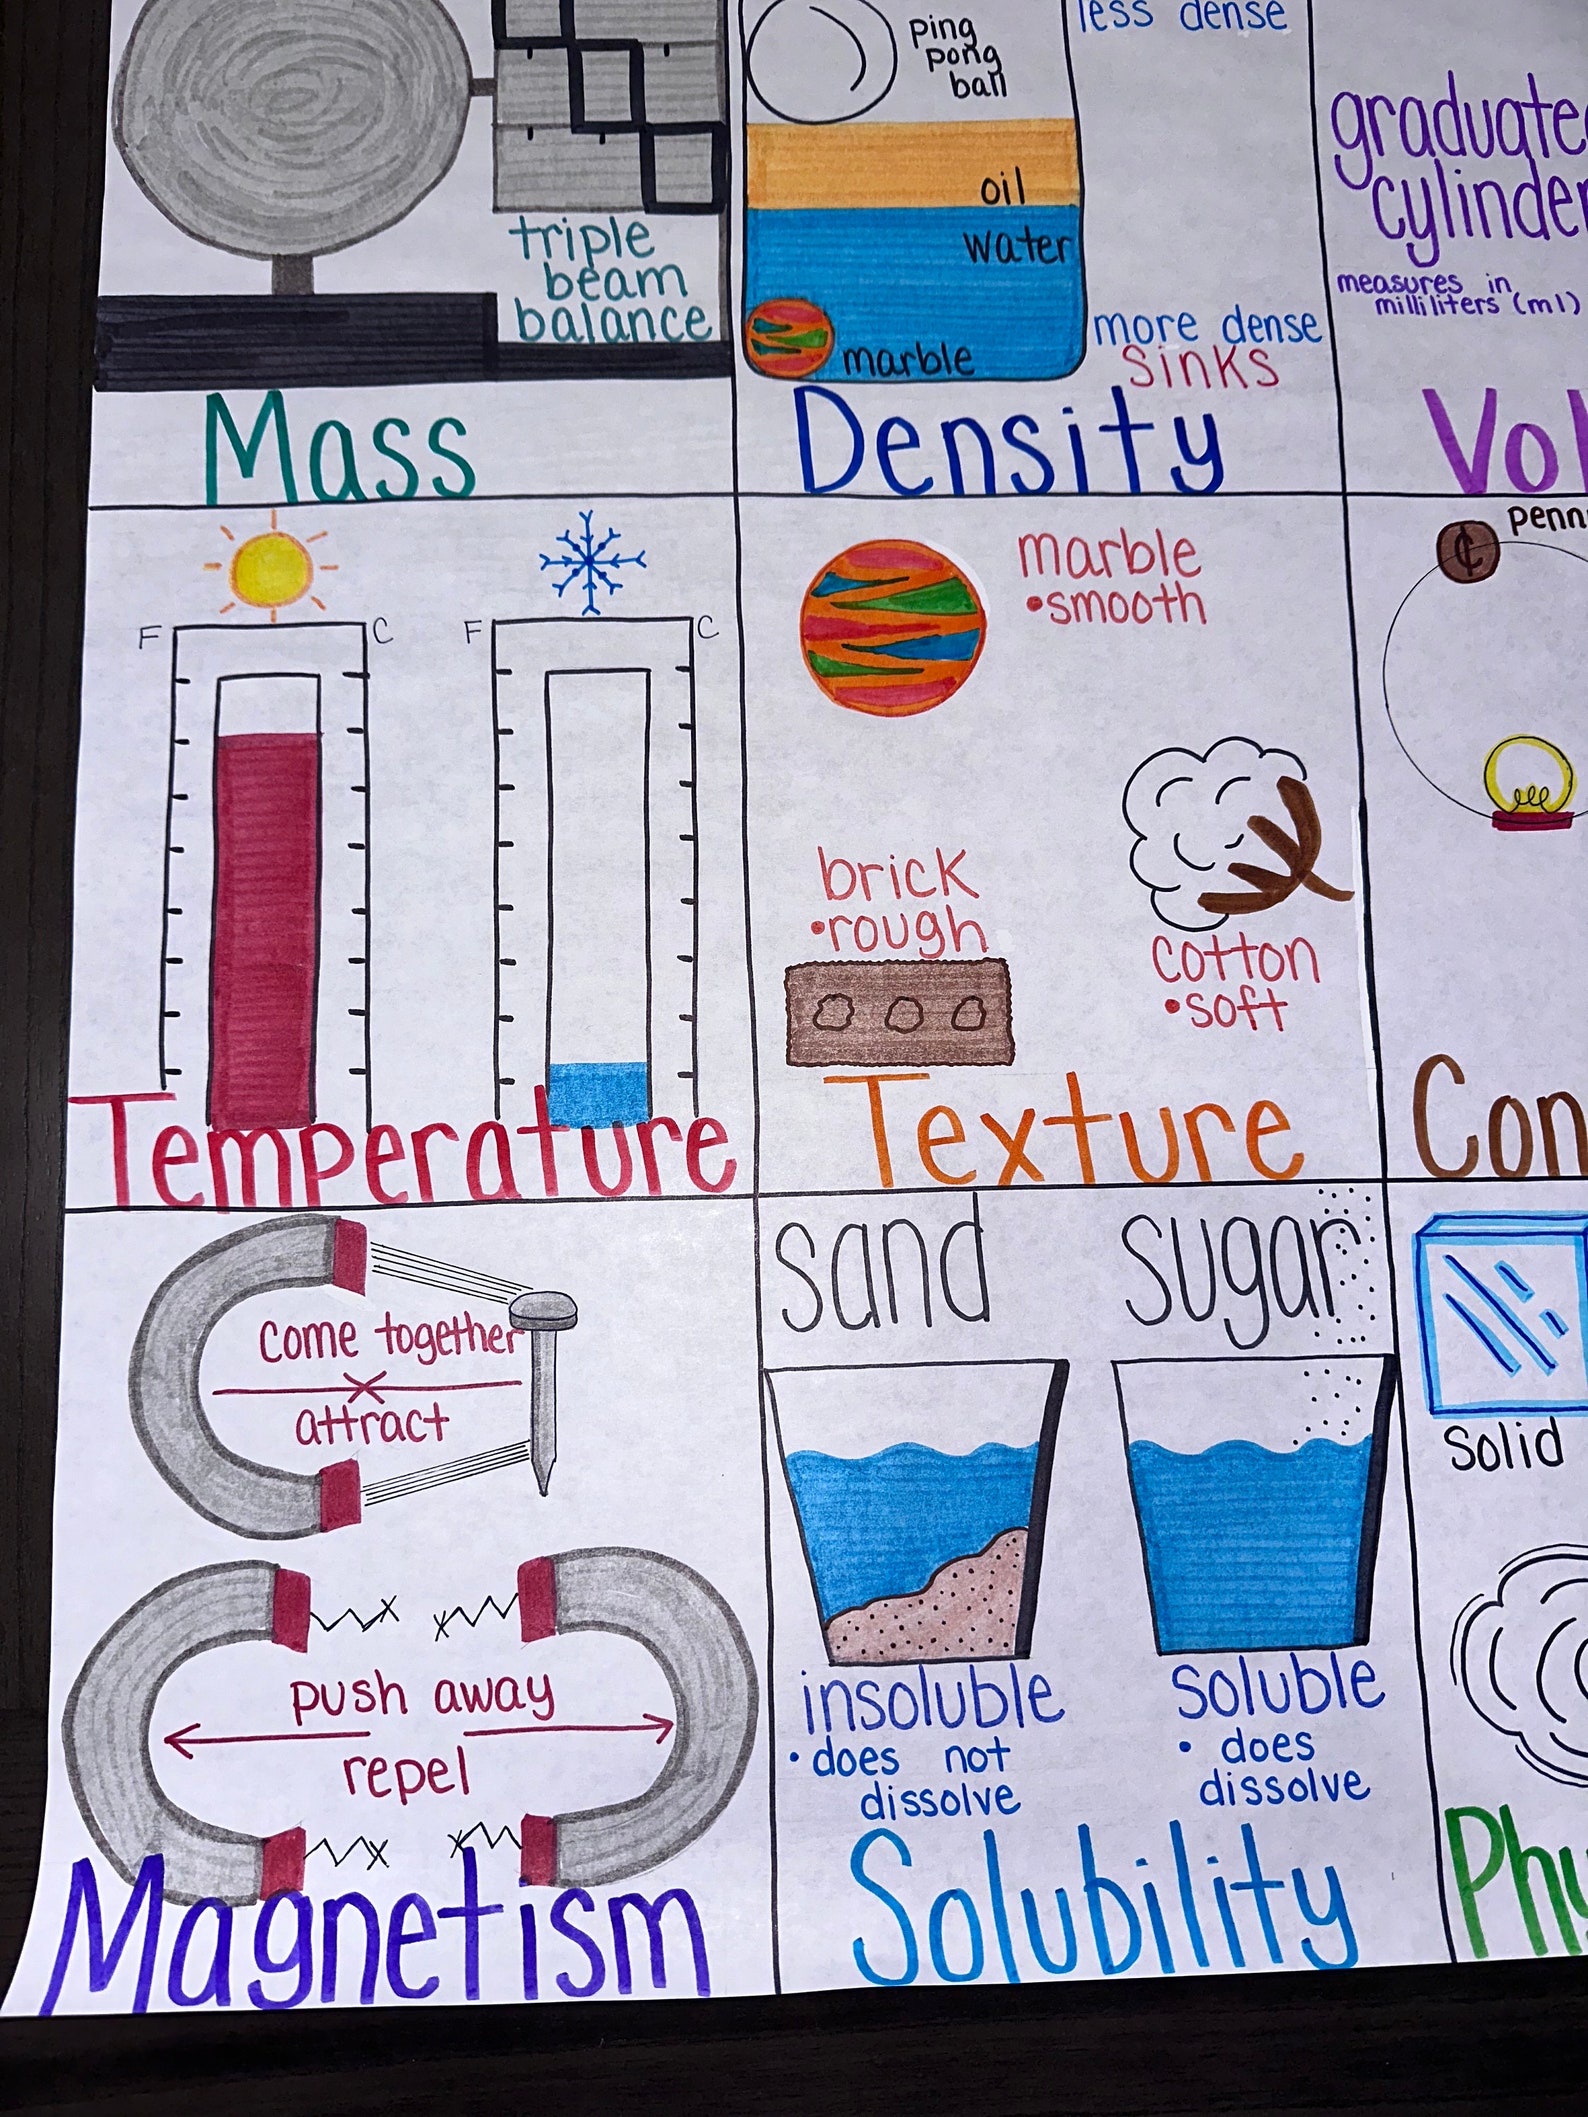 triple
beam
balance
Mass
ping
pong
ball
less dense
oil
water
marble
more dense
sinks
Density
graduate
cylinder
measures in
milliliters (ml)
Vol
F
C
F
C
Temperature
marble
•smooth
brick
•rough
cotton
•soft
Texture
¢
penn
Con
come together
attract
push away
repel
Magnetism
sand
sugar
insoluble
•does not
dissolve
soluble
• does
dissolve
Solubility
solid
Phy